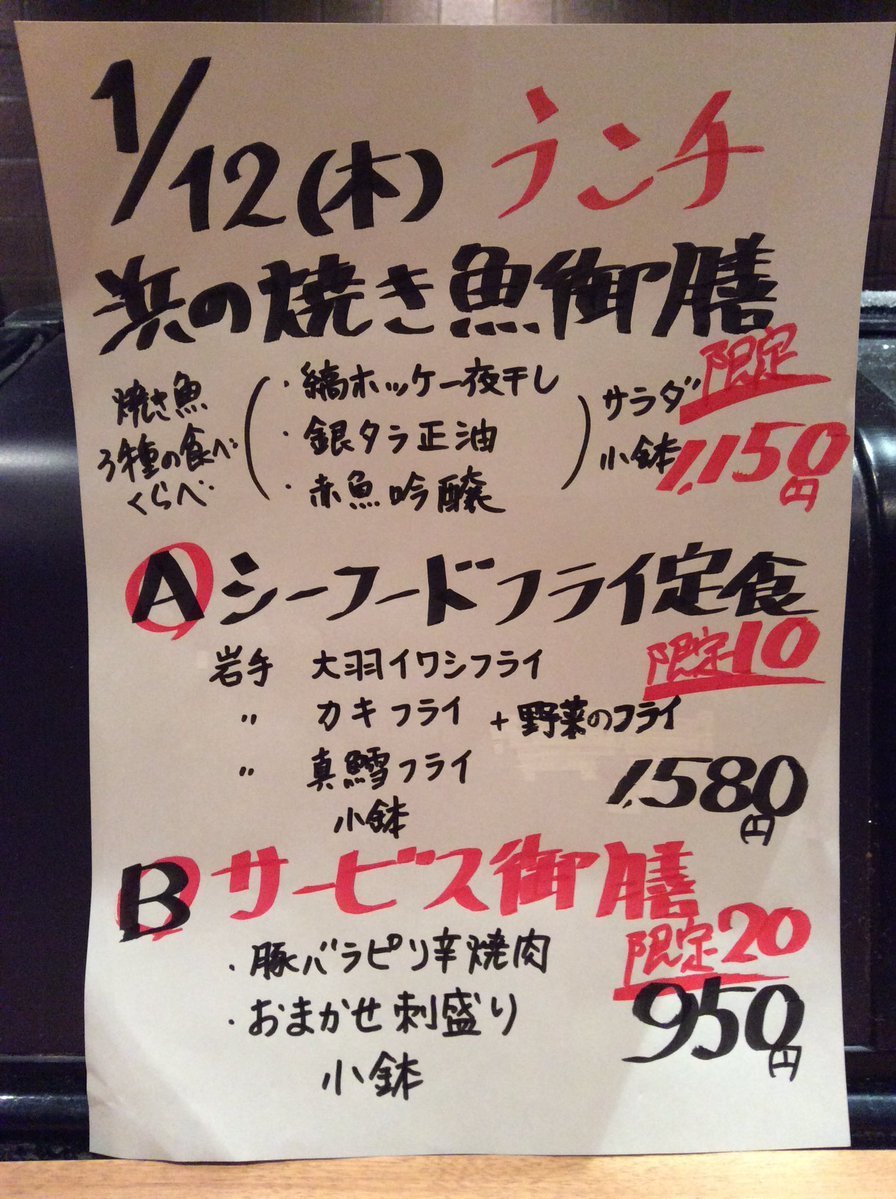 1/12(木) ランチ
浜の焼き魚御膳
限定
焼き魚
3種の食べ
くらべ
・縞ホッケ一夜干し
・銀タラ正油
・赤魚吟醸
サラダ
小鉢
1,150円
A シーフードフライ定食
限定10
岩手 大羽イワシフライ
〃 カキフライ +野菜のフライ
〃 真鱈フライ
小鉢
1,580円
B サービス御膳
限定20
・豚バラピリ辛焼肉
・おまかせ刺盛り
小鉢
950円